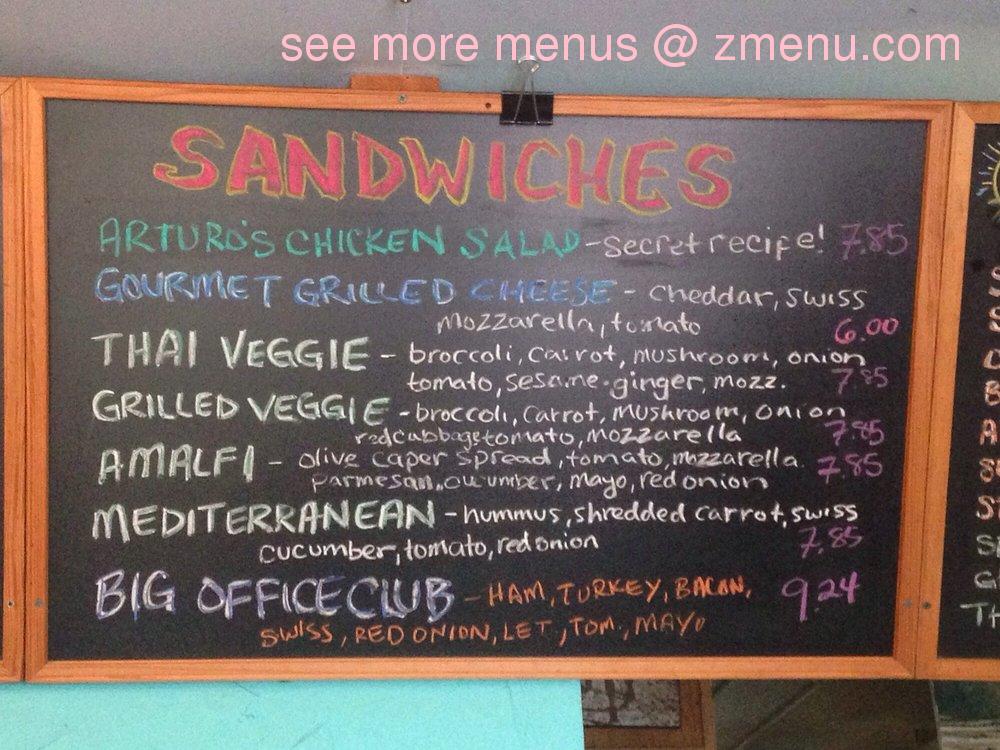 see more menus @ zmenu.com
SANDWICHES
ARTURO'S CHICKEN SALAD - secret recipe! 7.85
GOURMET GRILLED CHEESE - cheddar, swiss
mozzarella, tomato 6.00
THAI VEGGIE - broccoli, carrot, mushroom, onion
tomato, sesame-ginger, mozz. 7.85
GRILLED VEGGIE - broccoli, carrot, mushroom, onion
red cabbage tomato, mozzarella 7.85
AMALFI - olive caper spread, tomato, mozzarella 7.85
parmesan, cucumber, mayo, red onion
MEDITERRANEAN - hummus, shredded carrot, swiss
cucumber, tomato, red onion 7.85
BIG OFFICE CLUB - HAM, TURKEY, BACON, 9.24
SWISS, RED ONION, LET, TOM., MAYO